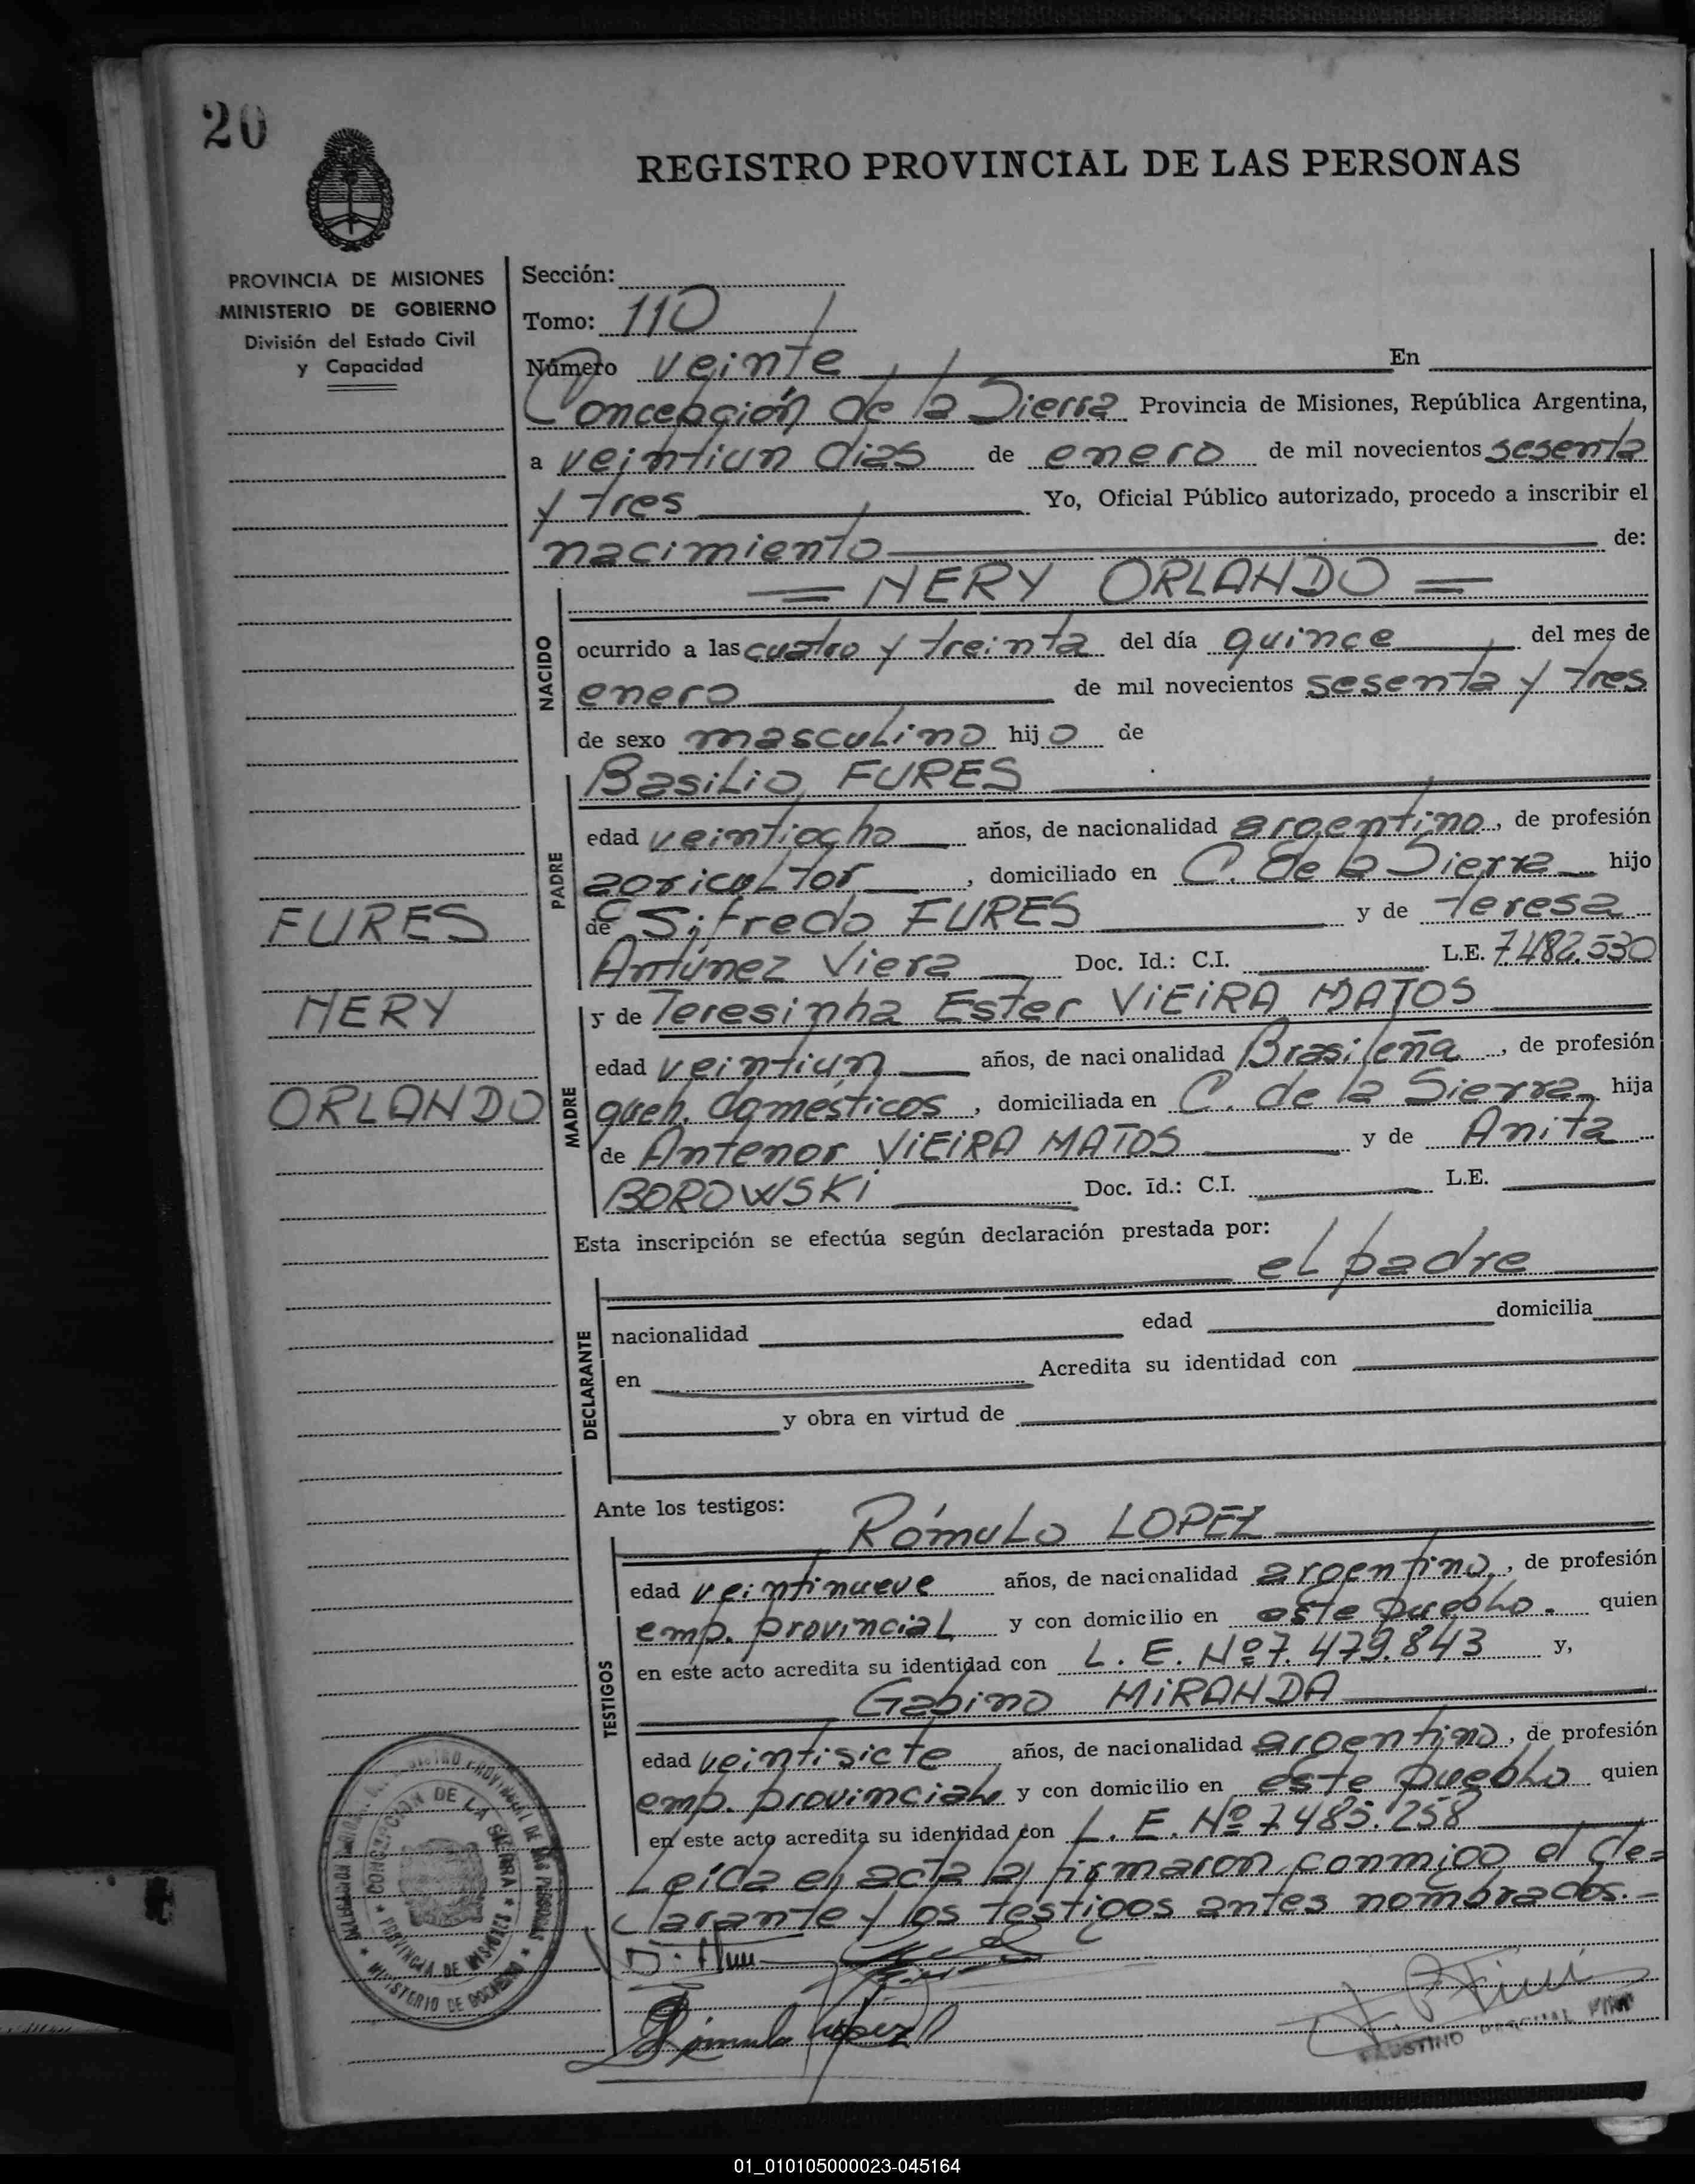 20
REGISTRO PROVINCIAL DE LAS PERSONAS
PROVINCIA DE MISIONES
MINISTERIO DE GOBIERNO
División del Estado Civil
y Capacidad
Sección:
Tomo: 110
Número veinte En
Concepción de la Sierra Provincia de Misiones, República Argentina,
a veintiun dias de enero de mil novecientos sesenta
y tres Yo, Oficial Público autorizado, procedo a inscribir el
nacimiento de:
= NERY ORLANDO =
NACIDO
ocurrido a las cuatro y treinta del día quince del mes de
enero de mil novecientos sesenta y tres
de sexo masculino hijo de
Basilio FURES
PADRE
edad veintiocho años, de nacionalidad argentino, de profesión
agricultor, domiciliado en C. de la Sierra hijo
de Sifredo FURES y de Teresa
Antúnez Viera Doc. Id.: C.I. L.E. 7.482.530
FURES
NERY
ORLANDO
MADRE
y de Teresinha Ester VIEIRA MATOS
edad veintiún años, de nacionalidad Brasileña, de profesión
queh. domésticos, domiciliada en C. de la Sierra hija
de Antenor VIEIRA MATOS y de Anita
BOROWSKI Doc. Id.: C.I. L.E.
Esta inscripción se efectúa según declaración prestada por:
el padre
DECLARANTE
nacionalidad edad domicilia
en Acredita su identidad con
y obra en virtud de
Ante los testigos:
Rómulo LOPEZ
TESTIGOS
edad veintinueve años, de nacionalidad argentino, de profesión
emp. provincial y con domicilio en este pueblo. quien
en este acto acredita su identidad con L. E. Nº 7.479.843 y,
Gabino MIRANDA
edad veintisiete años, de nacionalidad argentino, de profesión
emp. provincial y con domicilio en este pueblo quien
en este acto acredita su identidad con L. E. Nº 7.485.258
Leída el acta la firmaron conmigo el de=
clarante y los testigos antes nombrados.-
Rómulo López
FAUSTINO PASCUAL PINI
REGISTRO PROVINCIAL DE LAS PERSONAS
MINISTERIO DE GOBIERNO
CONCEPCION DE LA SIERRA
PROVINCIA DE MISIONES
01_010105000023-045164